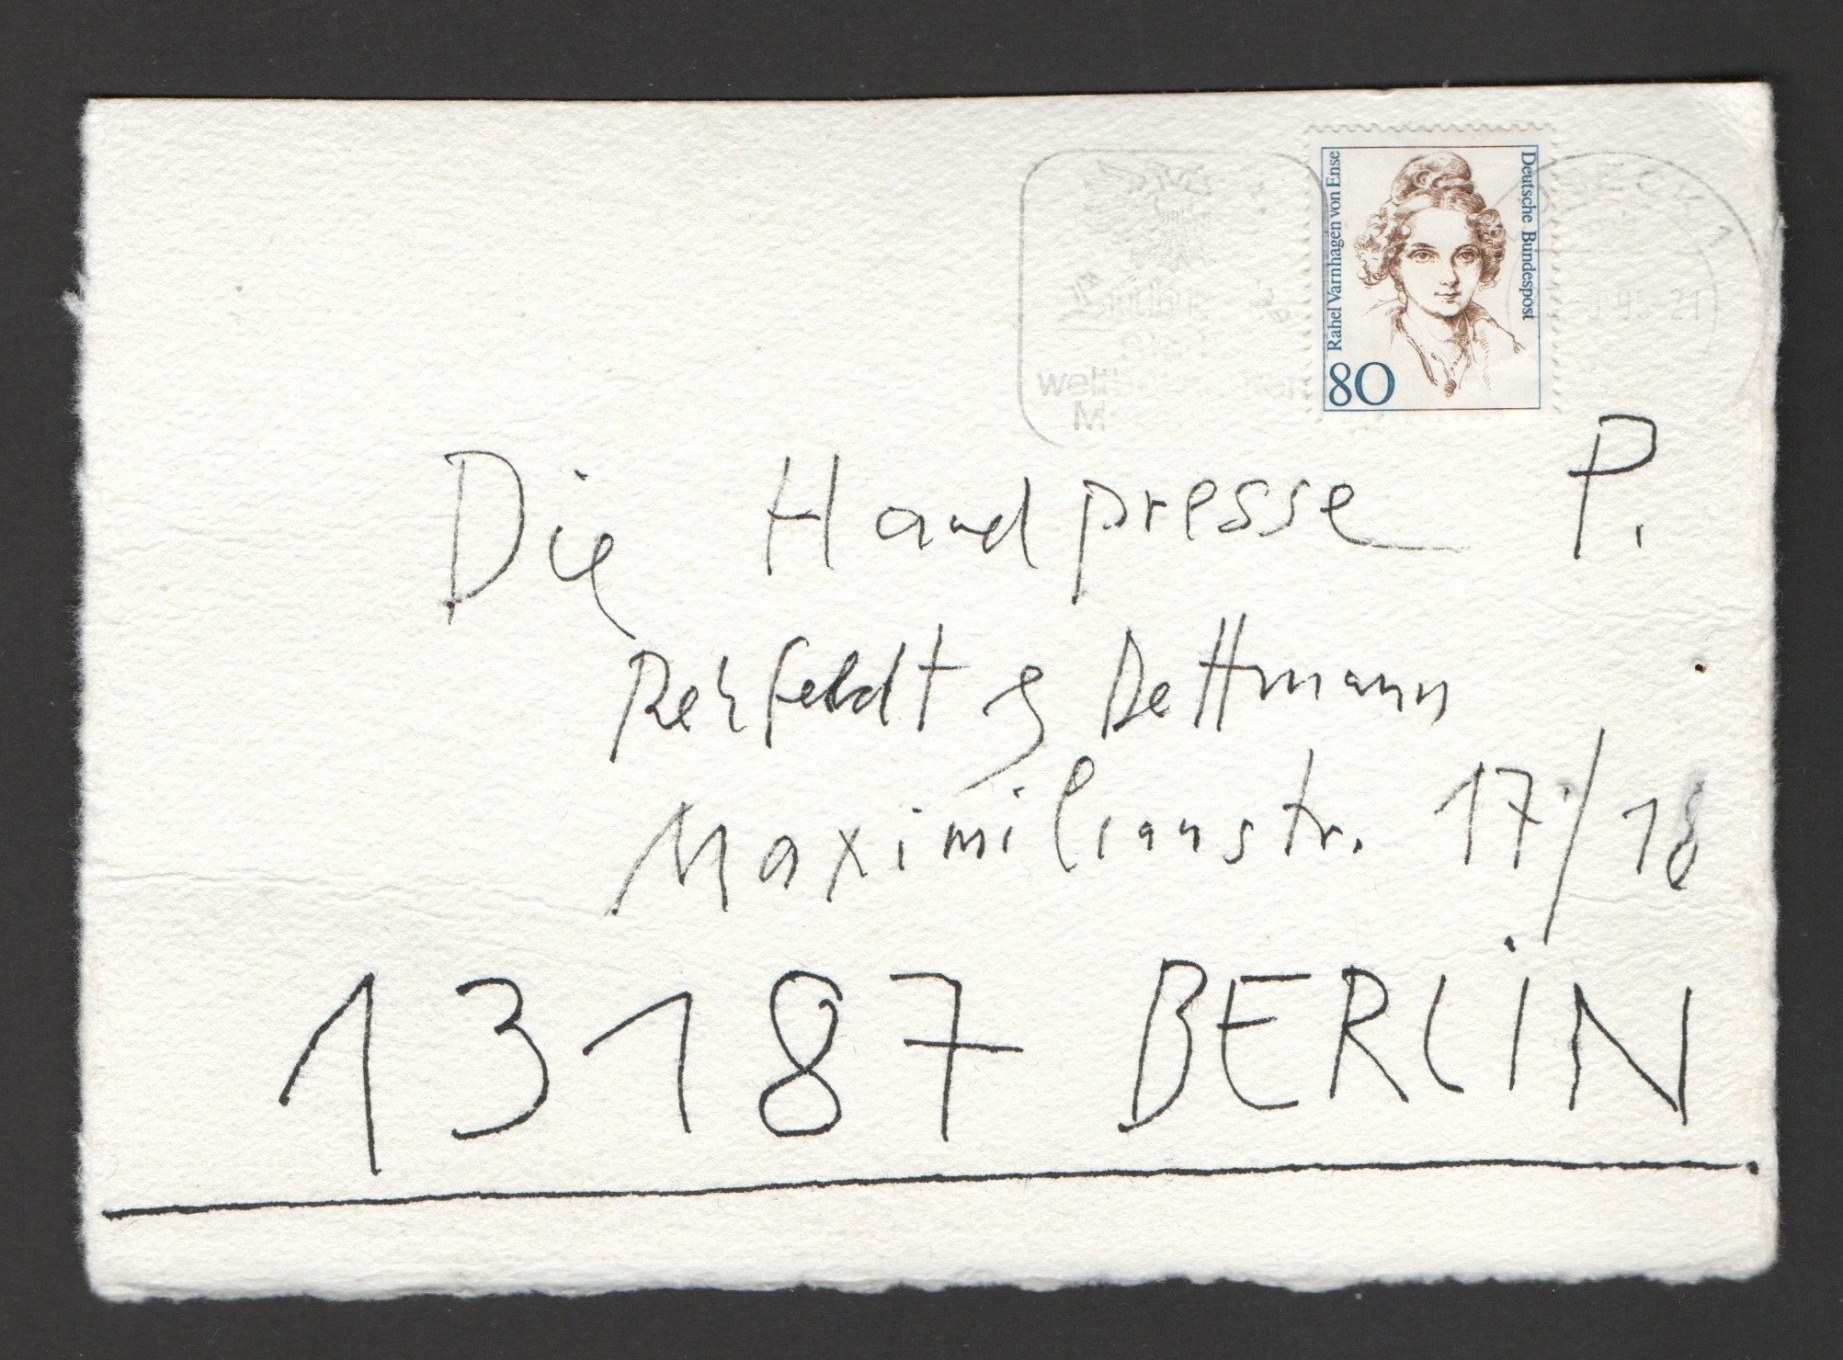 Rahel Varnhagen von Ense
Deutsche Bundespost
80
Die Handpresse P.
Rehfeldt & Dettmann
Maximilianstr. 17/18
13187 BERLIN